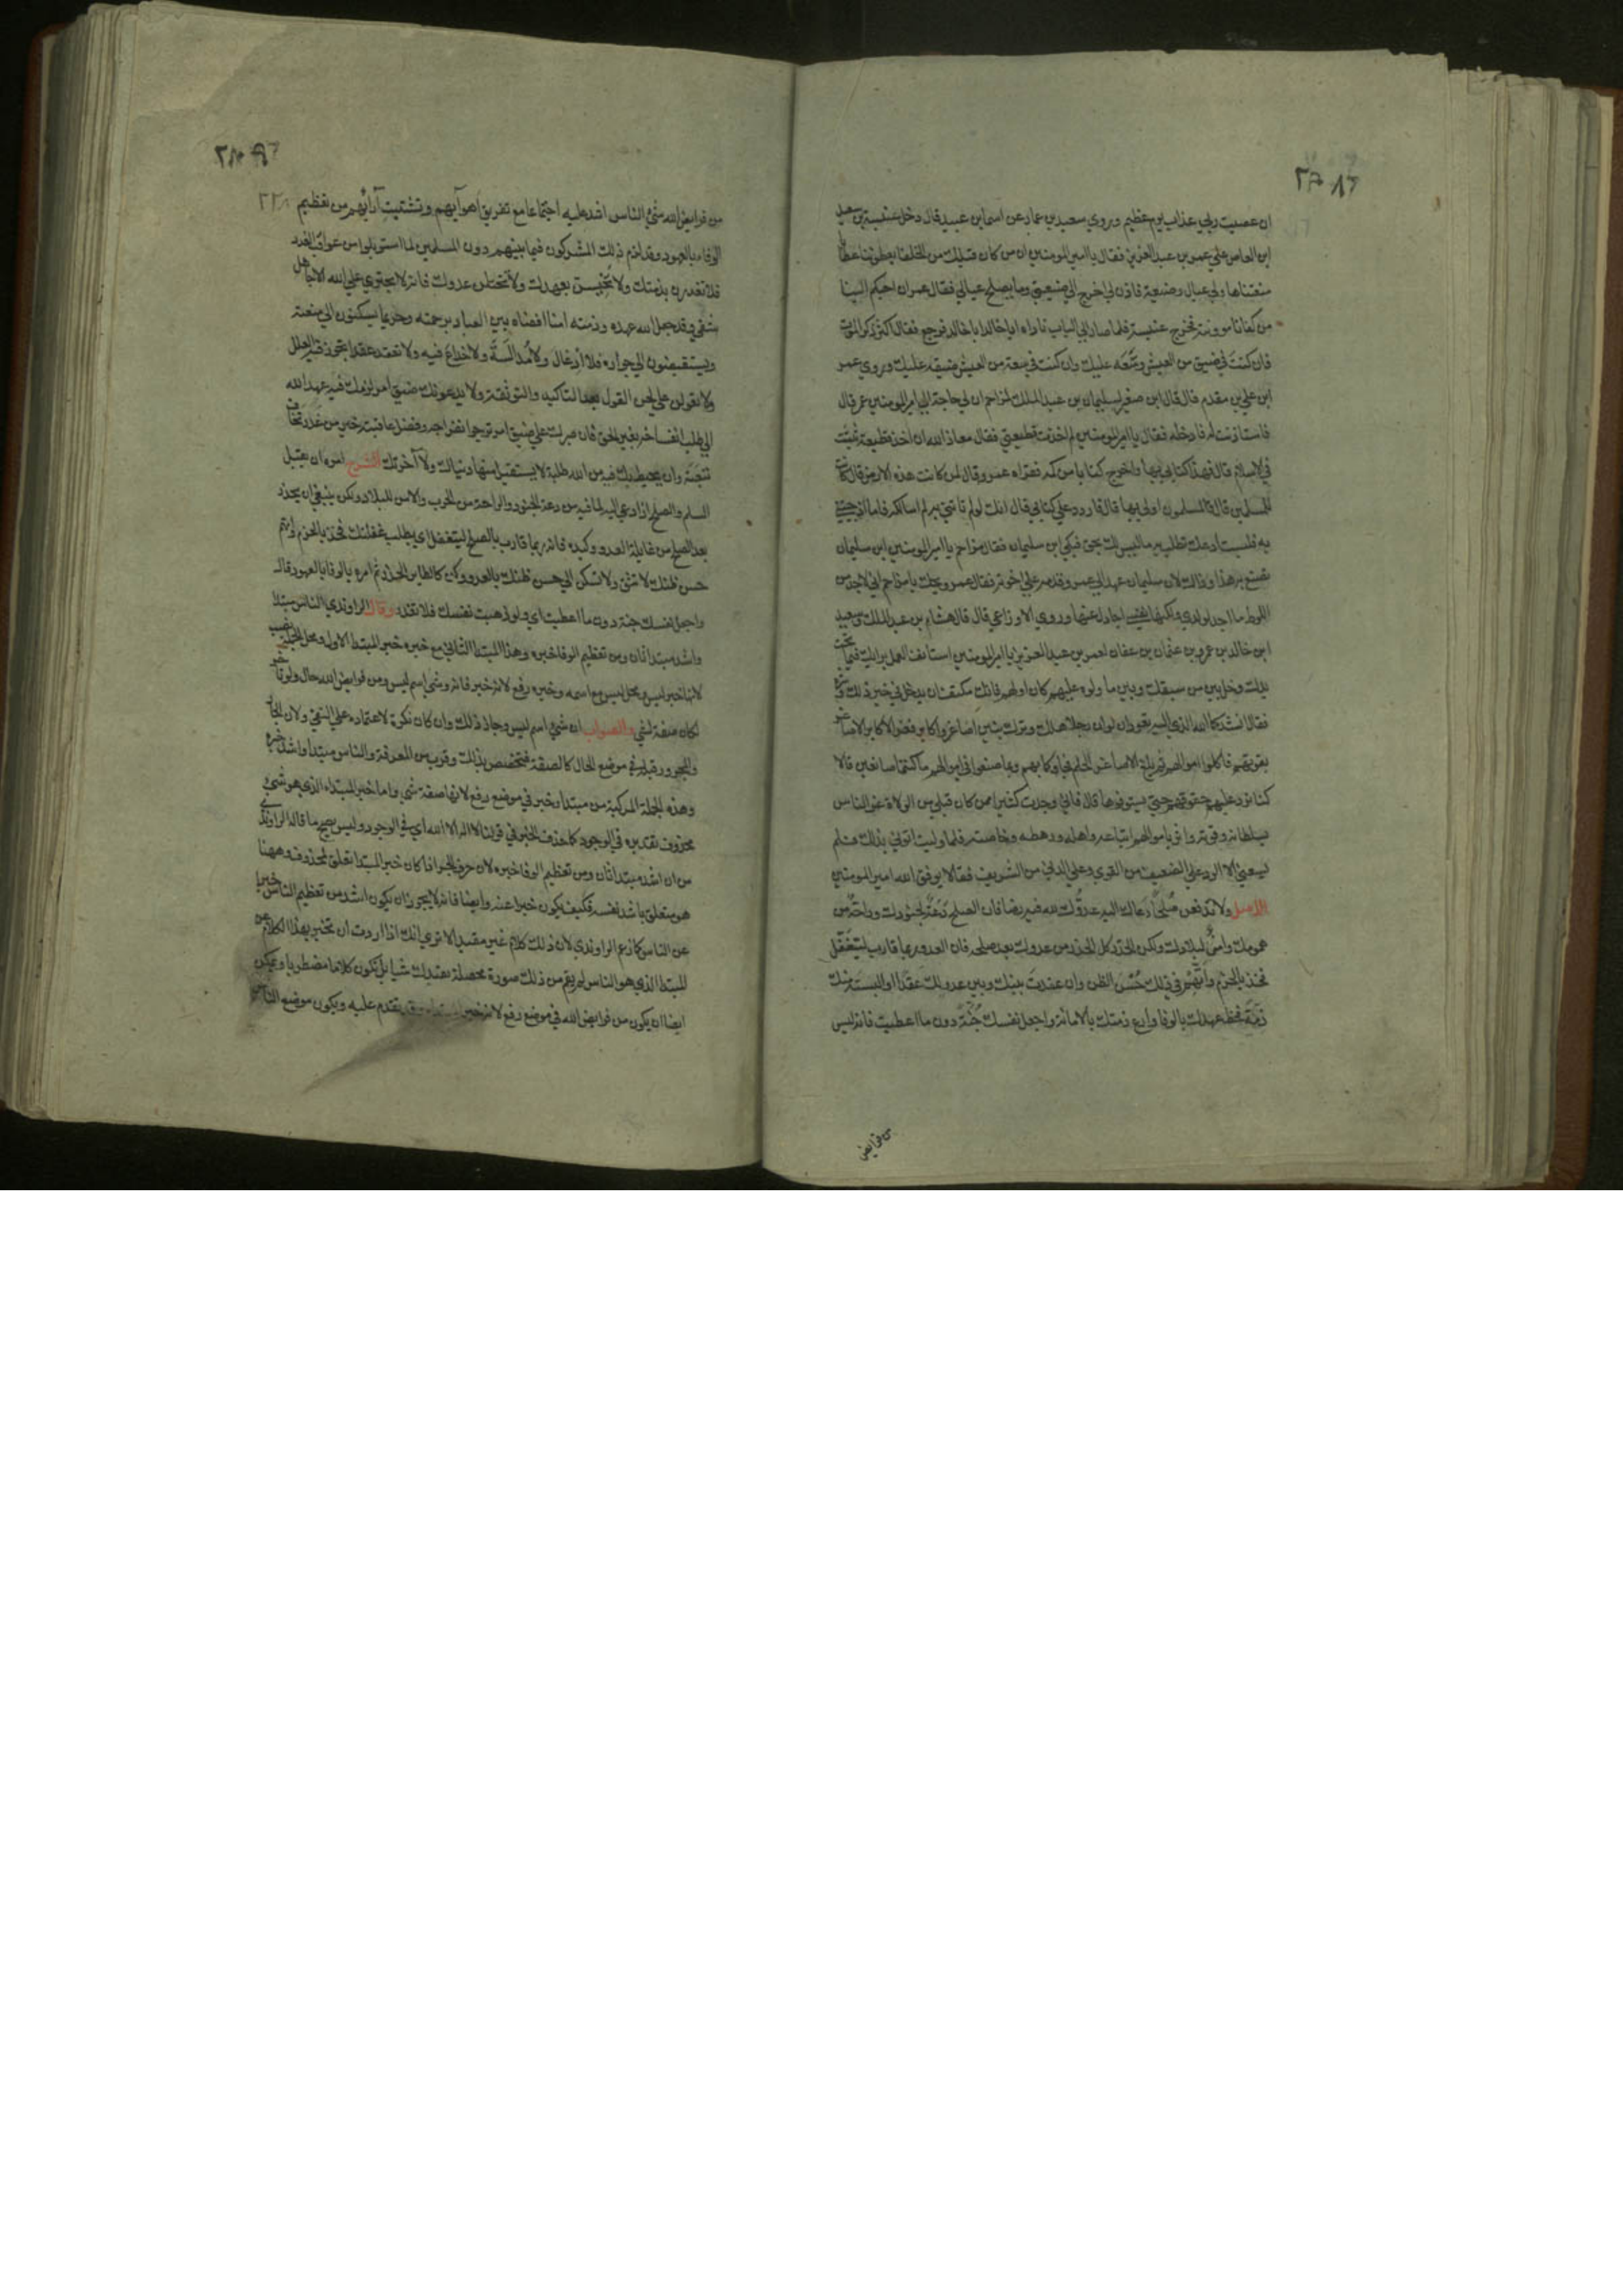 ان عصيت ربي عذاب يوم عظيم وروي سعيد بن عمار عن اسما بن عبيد قال دخل عنبسة بن سعيد
ابن العاص علي عمر بن عبد العزيز فقال يا امير المومنين ان من كان قبلك من الخلفا يعطوننا عطايا
منعتناها ولي عيال وضيعة فاذن لي اخرج الي ضيعتي وما يصلح عيالي فقال عمر ان احبكم الينا
من كفانا موونته فخرج عنبسة فلما صار الي الباب ناداه ابا خالد ابا خالد فرجع فقال اكثر ذكر الموت
فان كنت في ضيق من العيش وسعه عليك وان كنت في سعة من العيش ضيقه عليك وروي عمر
ابن علي بن مقدم قال قال ابن صغير لسليمان بن عبد الملك لمزاحم ان لي حاجة الي امير المومنين عمر قال
فاستاذنت له فادخله فقال يا امير المومنين لم اخذت قطيعتي فقال معاذ الله ان اخذ قطيعة ثبتت
في الاسلام قال فهذا كتابي بها واخرج كتابا من كمه فقراه عمر وقال لمن كانت هذه الارض قال كانت
للمسلمين قال فالمسلمون اولي بها قال فاردد علي كتابي قال انك لو لم تاتني به لم اسالكه فاما اذ جيتني
به فلست ادعك تطلب به ما ليس لك بحق فبكي ابن سليمان فقال مزاحم يا امير المومنين ابن سليمان
تصنع به هذا وذلك لان سليمان عهد الي عمر وقدمه علي اخوته فقال عمر ويحك يا مزاحم اني لاجد من
اللوط ما اجد لولدي ولكنها نفسي اجادل عنها وروي الاوزاعي قال قال هشام بن عبد الملك وسعيد
ابن خالد بن عمرو بن عثمان بن عفان لعمر بن عبد العزيز يا امير المومنين استانف العمل برايك فيما تحت
يدك وخل بين من سبقك وبين ما ولوه عليهم كان او لهم فانك مكتف ان يدخل في خير ذلك وشره
فقال انشدكما الله الذي اليه تعودان لو ان رجلا هلك وترك بنين اصاغر واكابر فغر الاكابر الاصاغر
بقوتهم فاكلوا اموالهم ثم بلغ الاصاغر الحلم فجاوكما بهم وبما صنعوا في اموالهم ما كنتما صانعين قالا
كنا نرد عليهم حقوقهم حتي يستوفوها قال فاني وجدت كثيرا ممن كان قبلي من الولاة غر الناس
بسلطانه وقوته واثر باموالهم اتباعه واهله ورهطه وخاصته فلما وليت اتوني بذلك فلم
يسعني الا الرد علي الضعيف من القوي وعلي الدني من الشريف فقالا يوفق الله امير المومنين
الاصل ولا تدفعن صلحا دعاك اليه عدوك لله فيه رضا فان الصلح دعة لجنودك وراحة من
همومك وامنا لبلادك ولكن الحذر كل الحذر من عدوك بعد صلحه فان العدو ربما قارب ليتغفل
فخذ بالحزم واتهم في ذلك حسن الظن وان عقدت بينك وبين عدولك عقدا او البسته منك
ذمة فحط عهدك بالوفا وارع ذمتك بالامانة واجعل نفسك جنة دون ما اعطيت فانه ليس
من فرايض
من فرايض الله شيء الناس اشد عليه اجتماعا مع تفريق اهوآيهم وتشتيت آرائهم من تعظيم
الوفاء بالعهود وقد لزم ذلك المشركون فيما بينهم دون المسلمين لما استوبلوا من عواقب الغدر
فلا تغدرن بذمتك ولا تخيسن بعهدك ولا تختلن عدوك فانه لا يجتري علي الله الا جاهل
شقي وقد جعل الله عهده وذمته امنا افضاه بين العباد برحمته وحريما يسكنون الي منعته
ويستفيضون الي جواره فلا ادغال ولا مدالسة ولا خداع فيه ولا تعقد عقدا تجوز فيه العلل
ولا تعولن علي لحن القول بعد التاكيد والتوثقة ولا يدعونك ضيق امر لزمك فيه عهد الله
الي طلب انفساخه بغير الحق فان صبرك علي ضيق امر ترجوا انفراجه وفضل عاقبته خير من غدر تخاف
تبعته وان تحيط بك فيه من الله طلبة لا يستقيل منها دنياك ولا آخرتك الشرح امره ان يقبل
السلم والصلح اذا دعي اليه لما فيه من دعة الجنود والراحة من الحرب والامن للبلاد ولكن ينبغي ان يحذر
بعد الصلح من غايلة العدو وكيده فانه ربما قارب بالصلح ليتغفل اي يطلب غفلتك فخذ بالحزم واتهم
حسن ظنك لا تثق ولا تسكن الي حسن ظنك بالعدو وكن كالطاير الحذر ثم امره بالوفا بالعهود قال
واجعل نفسك جنة دون ما اعطيت اي ولو ذهبت نفسك فلا تغدر وقال الراوندي الناس مبتدا
واشد مبتدا ثان ومن تعظيم الوفا خبره وهذا المبتدا الثاني مع خبره خبر المبتدا الاول ومحل الجملة نصب
لانها خبر ليس ومحل ليس مع اسمه وخبره رفع لانه خبر فانه وشي اسم ليس ومن فرايض الله حال ولو تاخر
لكان صفة لشي والصواب ان شيء اسم ليس وجاز ذلك وان كان نكرة لاعتماده علي النفي ولان الجار
والمجرور قبله في موضع الحال كالصفة فتخصص بذلك وقرب من المعرفة والناس مبتدا واشد خبره
وهذه الجملة المركبة من مبتدا وخبر في موضع رفع لانها صفة شي واما خبر المبتداء الذي هو شيء
محذوف تقديره في الوجود كما حذف الخبر في قولنا لا اله الا الله اي في الوجود وليس يصح ما قال الراوندي
من ان اشد مبتدا ثان ومن تعظيم الوفا خبره لان حرف الجر اذا كان خبر المبتدا تعلق بمحذوف وههنا
هو متعلق باشد نفسه فكيف يكون خبرا عنه وايضا فانه لا يجوز ان يكون اشد من تعظيم الناس خبرا
عن الناس كما زعم الراوندي لان ذلك كلام غير مفيد الا تري انك اذا اردت ان تخبر بهذا الكلام عن
المبتدا الذي هو الناس لم يقم من ذلك صورة محصلة تفيدك شيا بل تكون كلاما مضطربا ويمكن
ايضا ان يكون من فرايض الله في موضع رفع لانه خبر يتقدم عليه ويكون موضع الناس